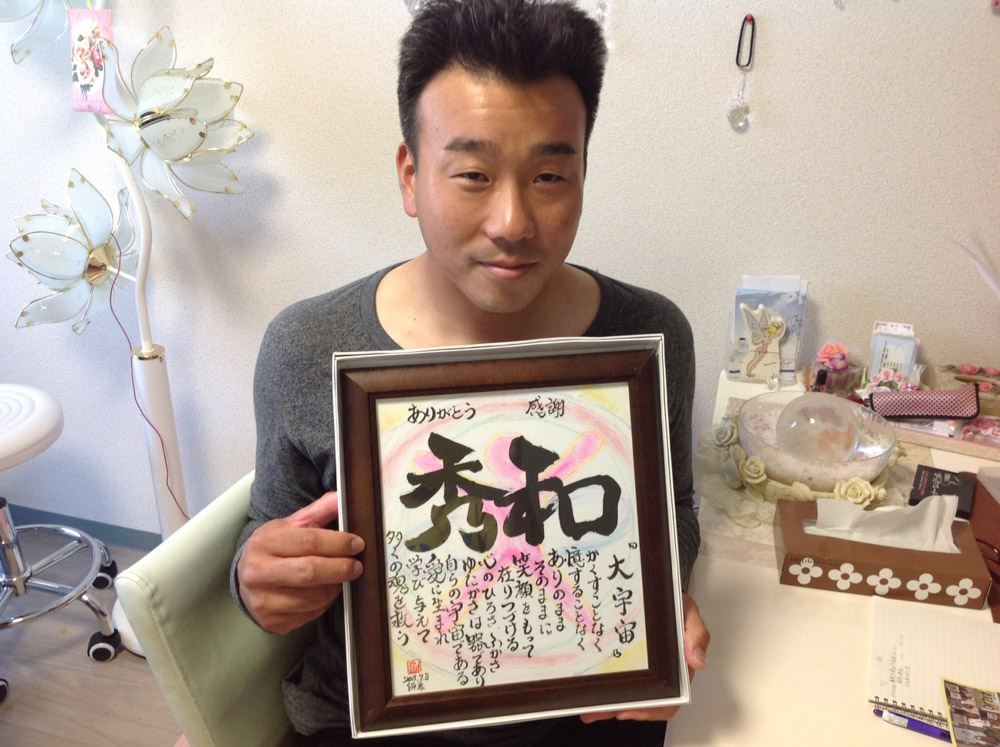 ありがとう 感謝
和秀
『大宇宙』
かくすことなく
憶することなく
ありのまま
そのままに
笑顔をもって
在りつづける
心のひろさ、ふかさ
ゆたかさは器であり
自らの宇宙である
愛に生まれ
学び与えて
多くの魂を救う